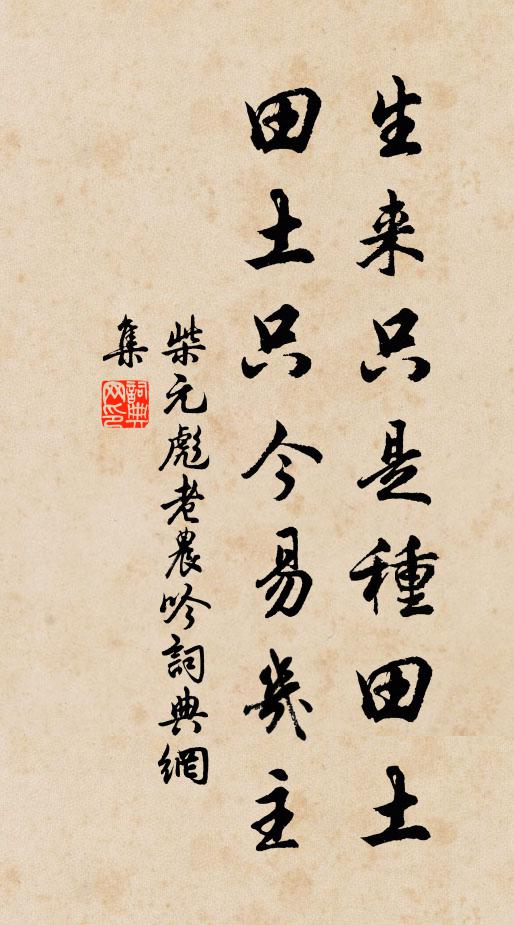 生来只是種田土
田土只今易幾主
柴元彪老農吟詞典網
集
詞典網印